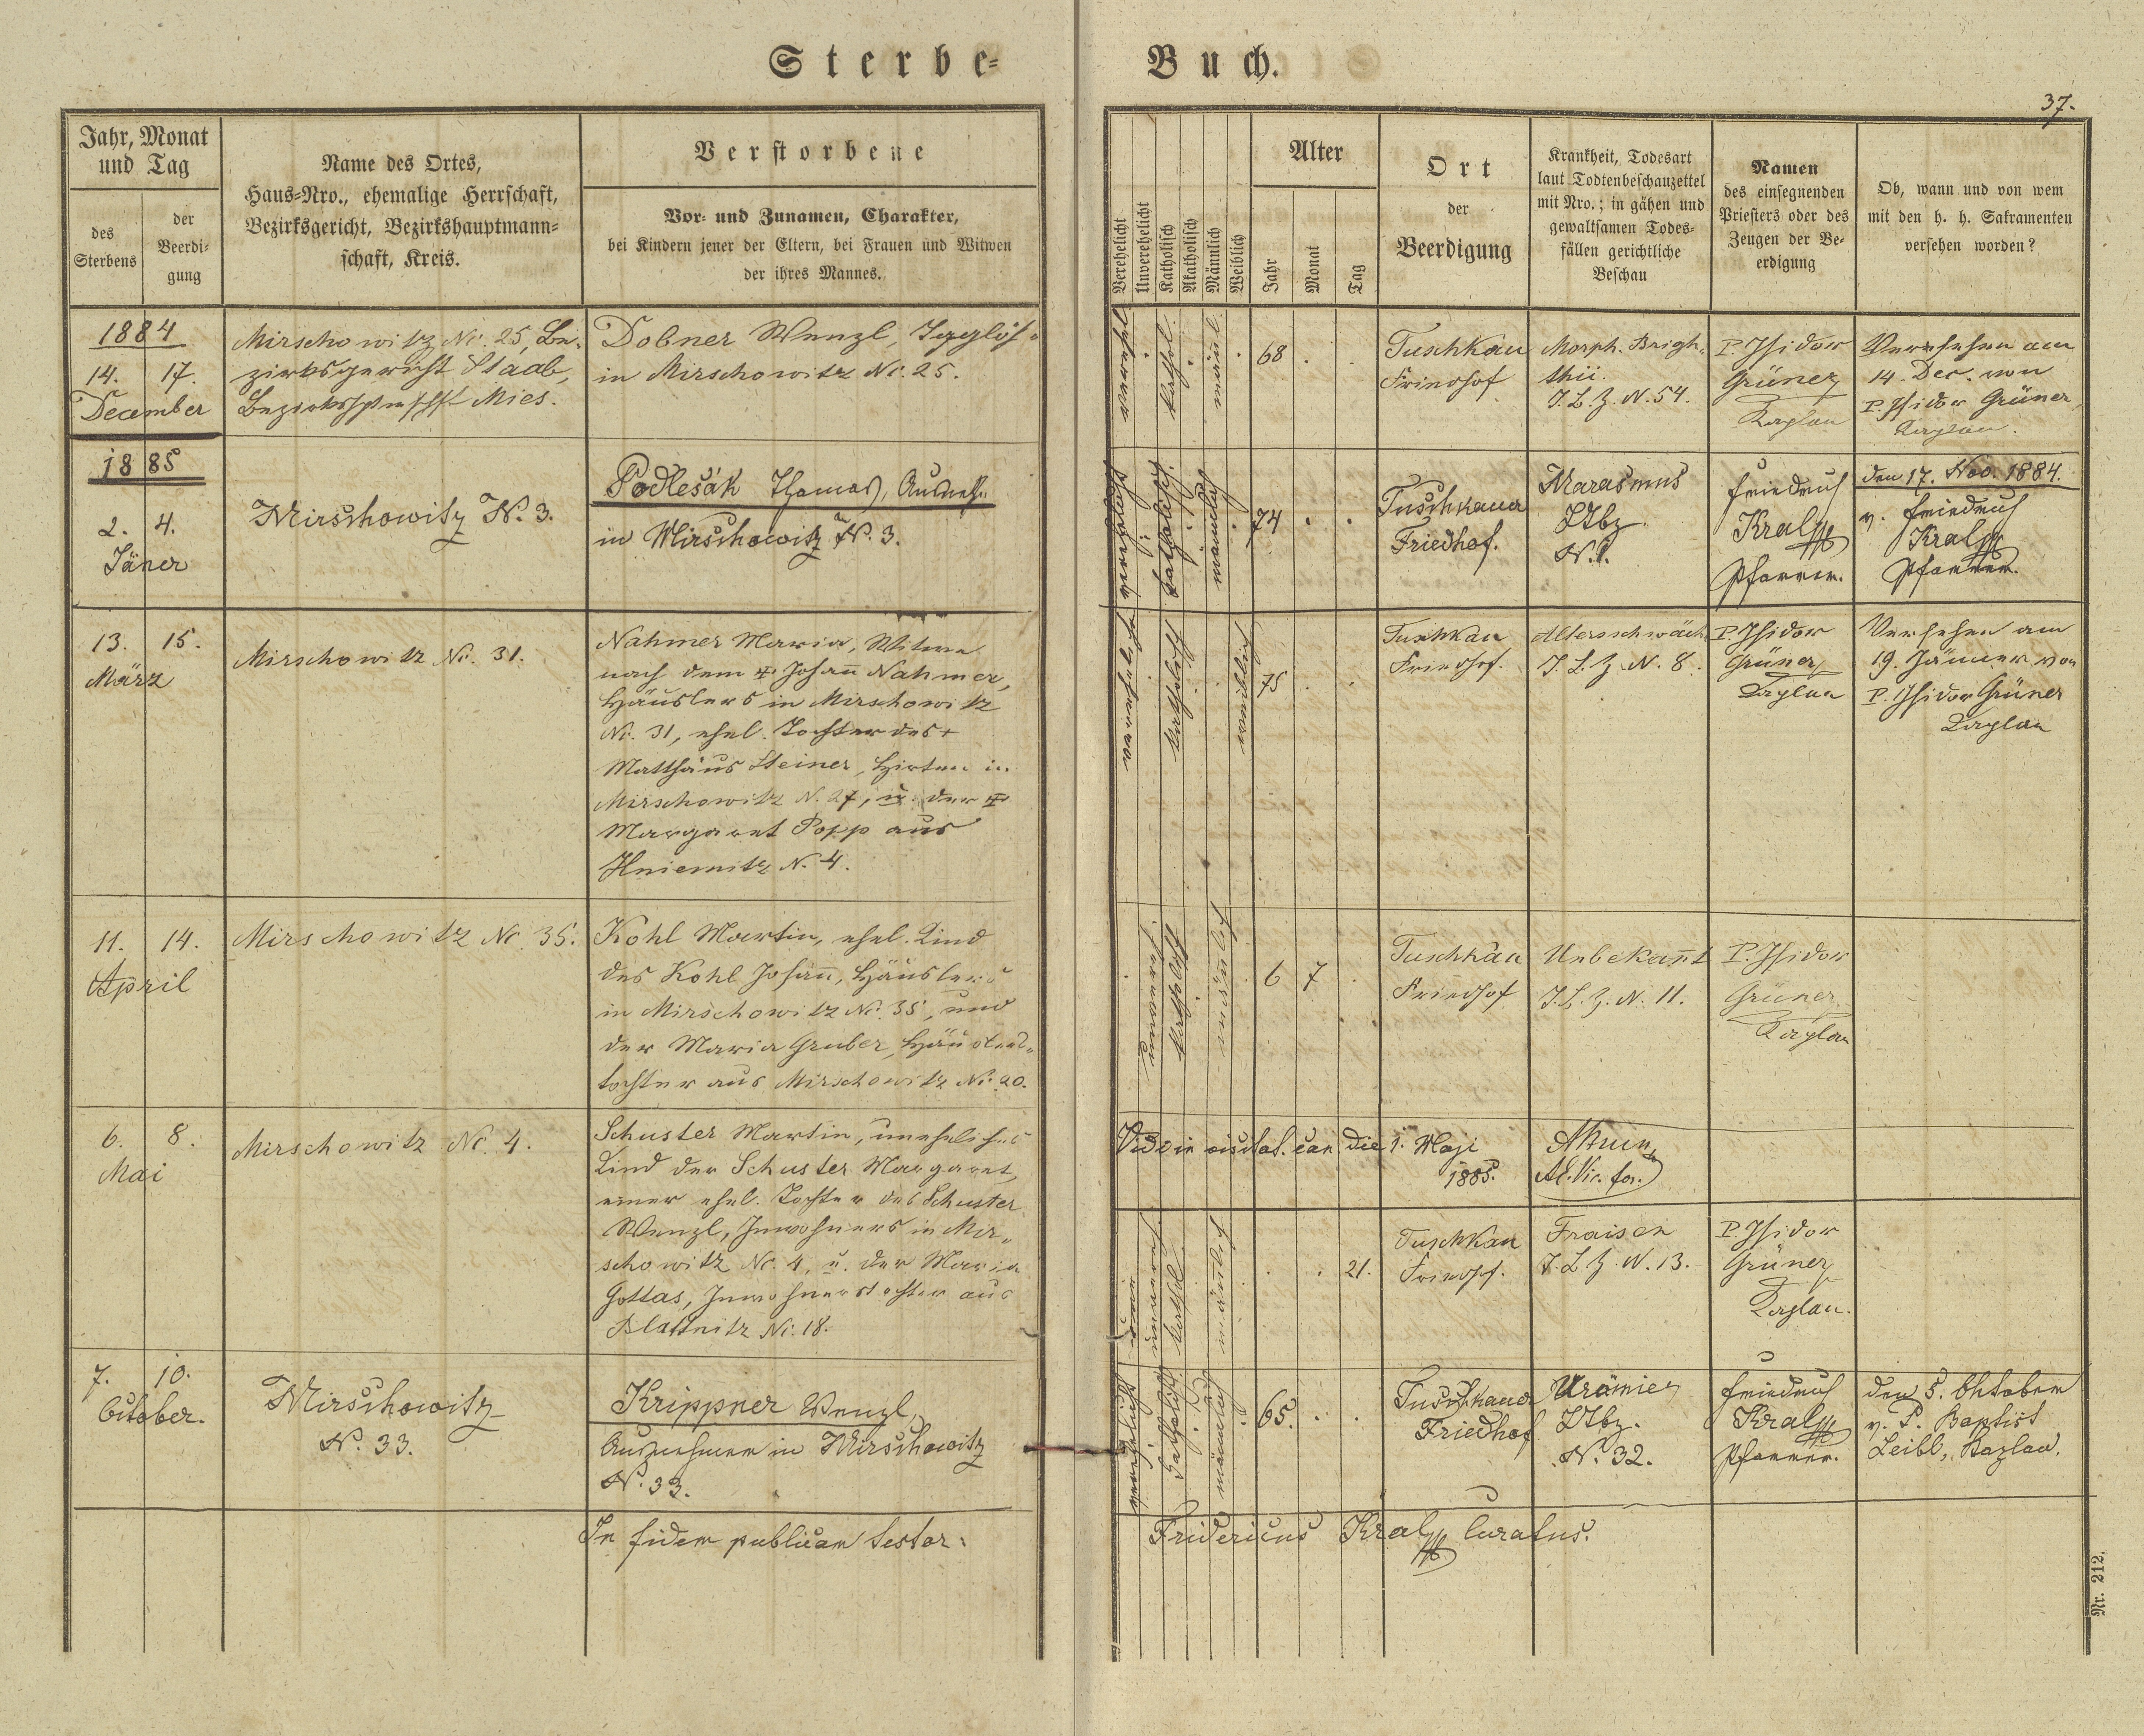 Sterbe-
Buch.
37.
Jahr, Monat
und Tag
des
Sterbens
der
Beerdi-
gung
Name des Ortes,
Haus-Nro., ehemalige Herrschaft,
Bezirksgericht, Bezirkshauptmann-
schaft, Kreis.
Verstorbene
Vor- und Zunamen, Charakter,
bei Kindern jener der Eltern, bei Frauen und Witwen
der ihres Mannes.
Verehelicht
Unverehelicht
Katholisch
Akatholisch
Männlich
Weiblich
Alter
Jahr
Monat
Tag
Ort
der
Beerdigung
Krankheit, Todesart
laut Todtenbeschauzettel
mit Nro.; in gähen und
gewaltsamen Todes-
fällen gerichtliche
Beschau
Namen
des einsegnenden
Priesters oder des
Zeugen der Be-
erdigung
Ob, wann und von wem
mit den h. h. Sakramenten
versehen worden?
1884
14. 17.
December
Mirschowitz No. 25, Be-
zirksgericht Staab,
Mies.
Dobner Wenzl,
in Mirschowitz No. 25.
kathol.
männl.
68
Tuschkau
Friedhof
Morph. Brigh-
thii.
T.L.Z. N. 54.
P. Isidor
Grüner
Kaplan
Versehen am
14. Dec. von
P. Isidor Grüner,
Kaplan.
1885
2. 4.
Jäner
Mirschowitz N. 3.
Podlešák Thomas,
in Mirschowitz N. 3.
verehelicht
katholisch.
männlich
74
Tuschkauer
Friedhof.
Marasmus
N. 1.
Friedrich
Kral
Pfarrer.
den 17. Nov. 1884.
v. Friedrich
Kral
Pfarrer.
13. 15.
März
Mirschowitz No. 31.
Nahmer Maria, Witwe
nach dem Johann Nahmer,
Häuslers in Mirschowitz
No. 31, ehel. Tochter des +
Matthäus Steiner, Hirten in
Mirschowitz N. 27, u. der
Margaret Popp aus
Hniemitz N. 4.
katholisch
weiblich
75
Tuschkau
Friedhof.
Altersschwäche
T.L.Z. N. 8.
P. Isidor
Grüner
Kaplan
Versehen am
19. Jänner von
P. Isidor Grüner
Kaplan
11. 14.
April
Mirschowitz No. 35.
Kohl Martin, ehel. Kind
des Kohl Johann, Häuslers
in Mirschowitz No. 35, und
der Maria Gruber, Häuslers-
tochter aus Mirschowitz No. 20.
unvereh.
katholisch
männlich
6 7
Tuschkau
Friedhof
Unbekannt
T.L.Z. N. 11.
P. Isidor
Grüner
Kaplan
Vidi in visitat. can. die 1. Maji
1885.
6. 8.
Mai
Mirschowitz No. 4.
Schuster Martin, uneheliches
Kind der Schuster Margaret,
einer ehel. Tochter des Schuster
Wenzl, Inwohners in Mir-
schowitz No. 4, u. der Maria
Gottas, Inwohnerstochter aus
Blattnitz No. 18.
unvereh.
kathol.
männlich
21.
Tuschkau
Friedhof.
Fraisen
T.L.Z. N. 13.
P. Isidor
Grüner
Kaplan.
7. 10.
October.
Mirschowitz
N. 33.
Krippner Wenzl,
Ausnehmer in Mirschowitz
N. 33.
verehelicht
katholisch
männlich
65.
Tuschkauer
Friedhof.
Urämie
N. 32.
Friedrich
Kral
Pfarrer.
den 5. Oktober
v. P. Baptist
Leibl, Kaplan.
In fidem publicam testor:
Fridericus Kral Curatus.
Nr. 212.